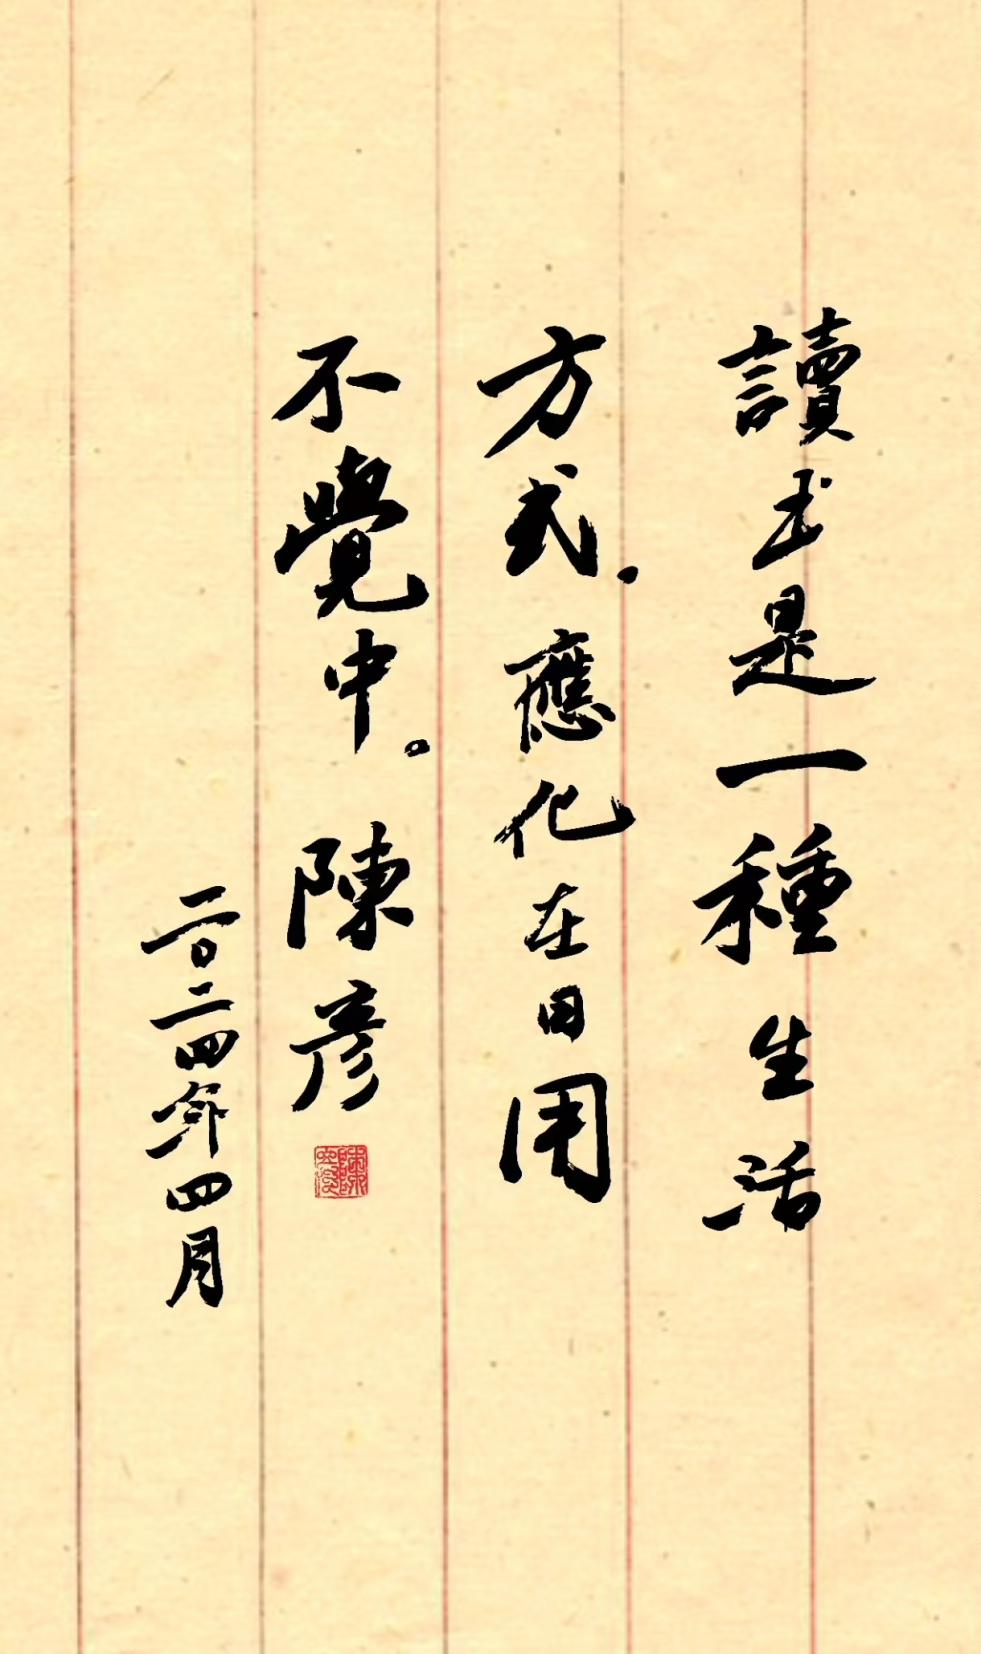 讀书是一種生活
方式.應化在日用
不覺中。陳彥
二〇二四年四月